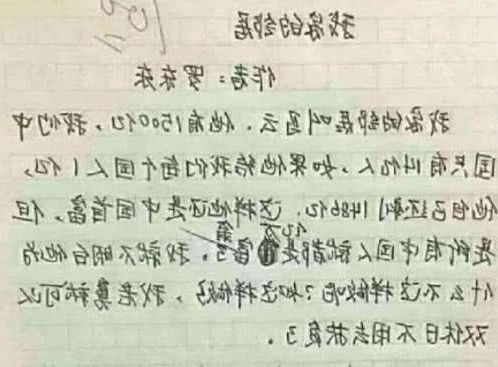 我家的邻居
作者：罗东东
我家的邻居叫马云，他有1500亿，我们中
国只有14亿人，如果他给我们每个国人1亿，
他自己还剩1486亿。这样他还是中国首富，但
是所有中国人就都是亿万富翁了。我就不明白他为
什么不这样做呢？如这样做，我老就可以
双休日不用去扶贫了。